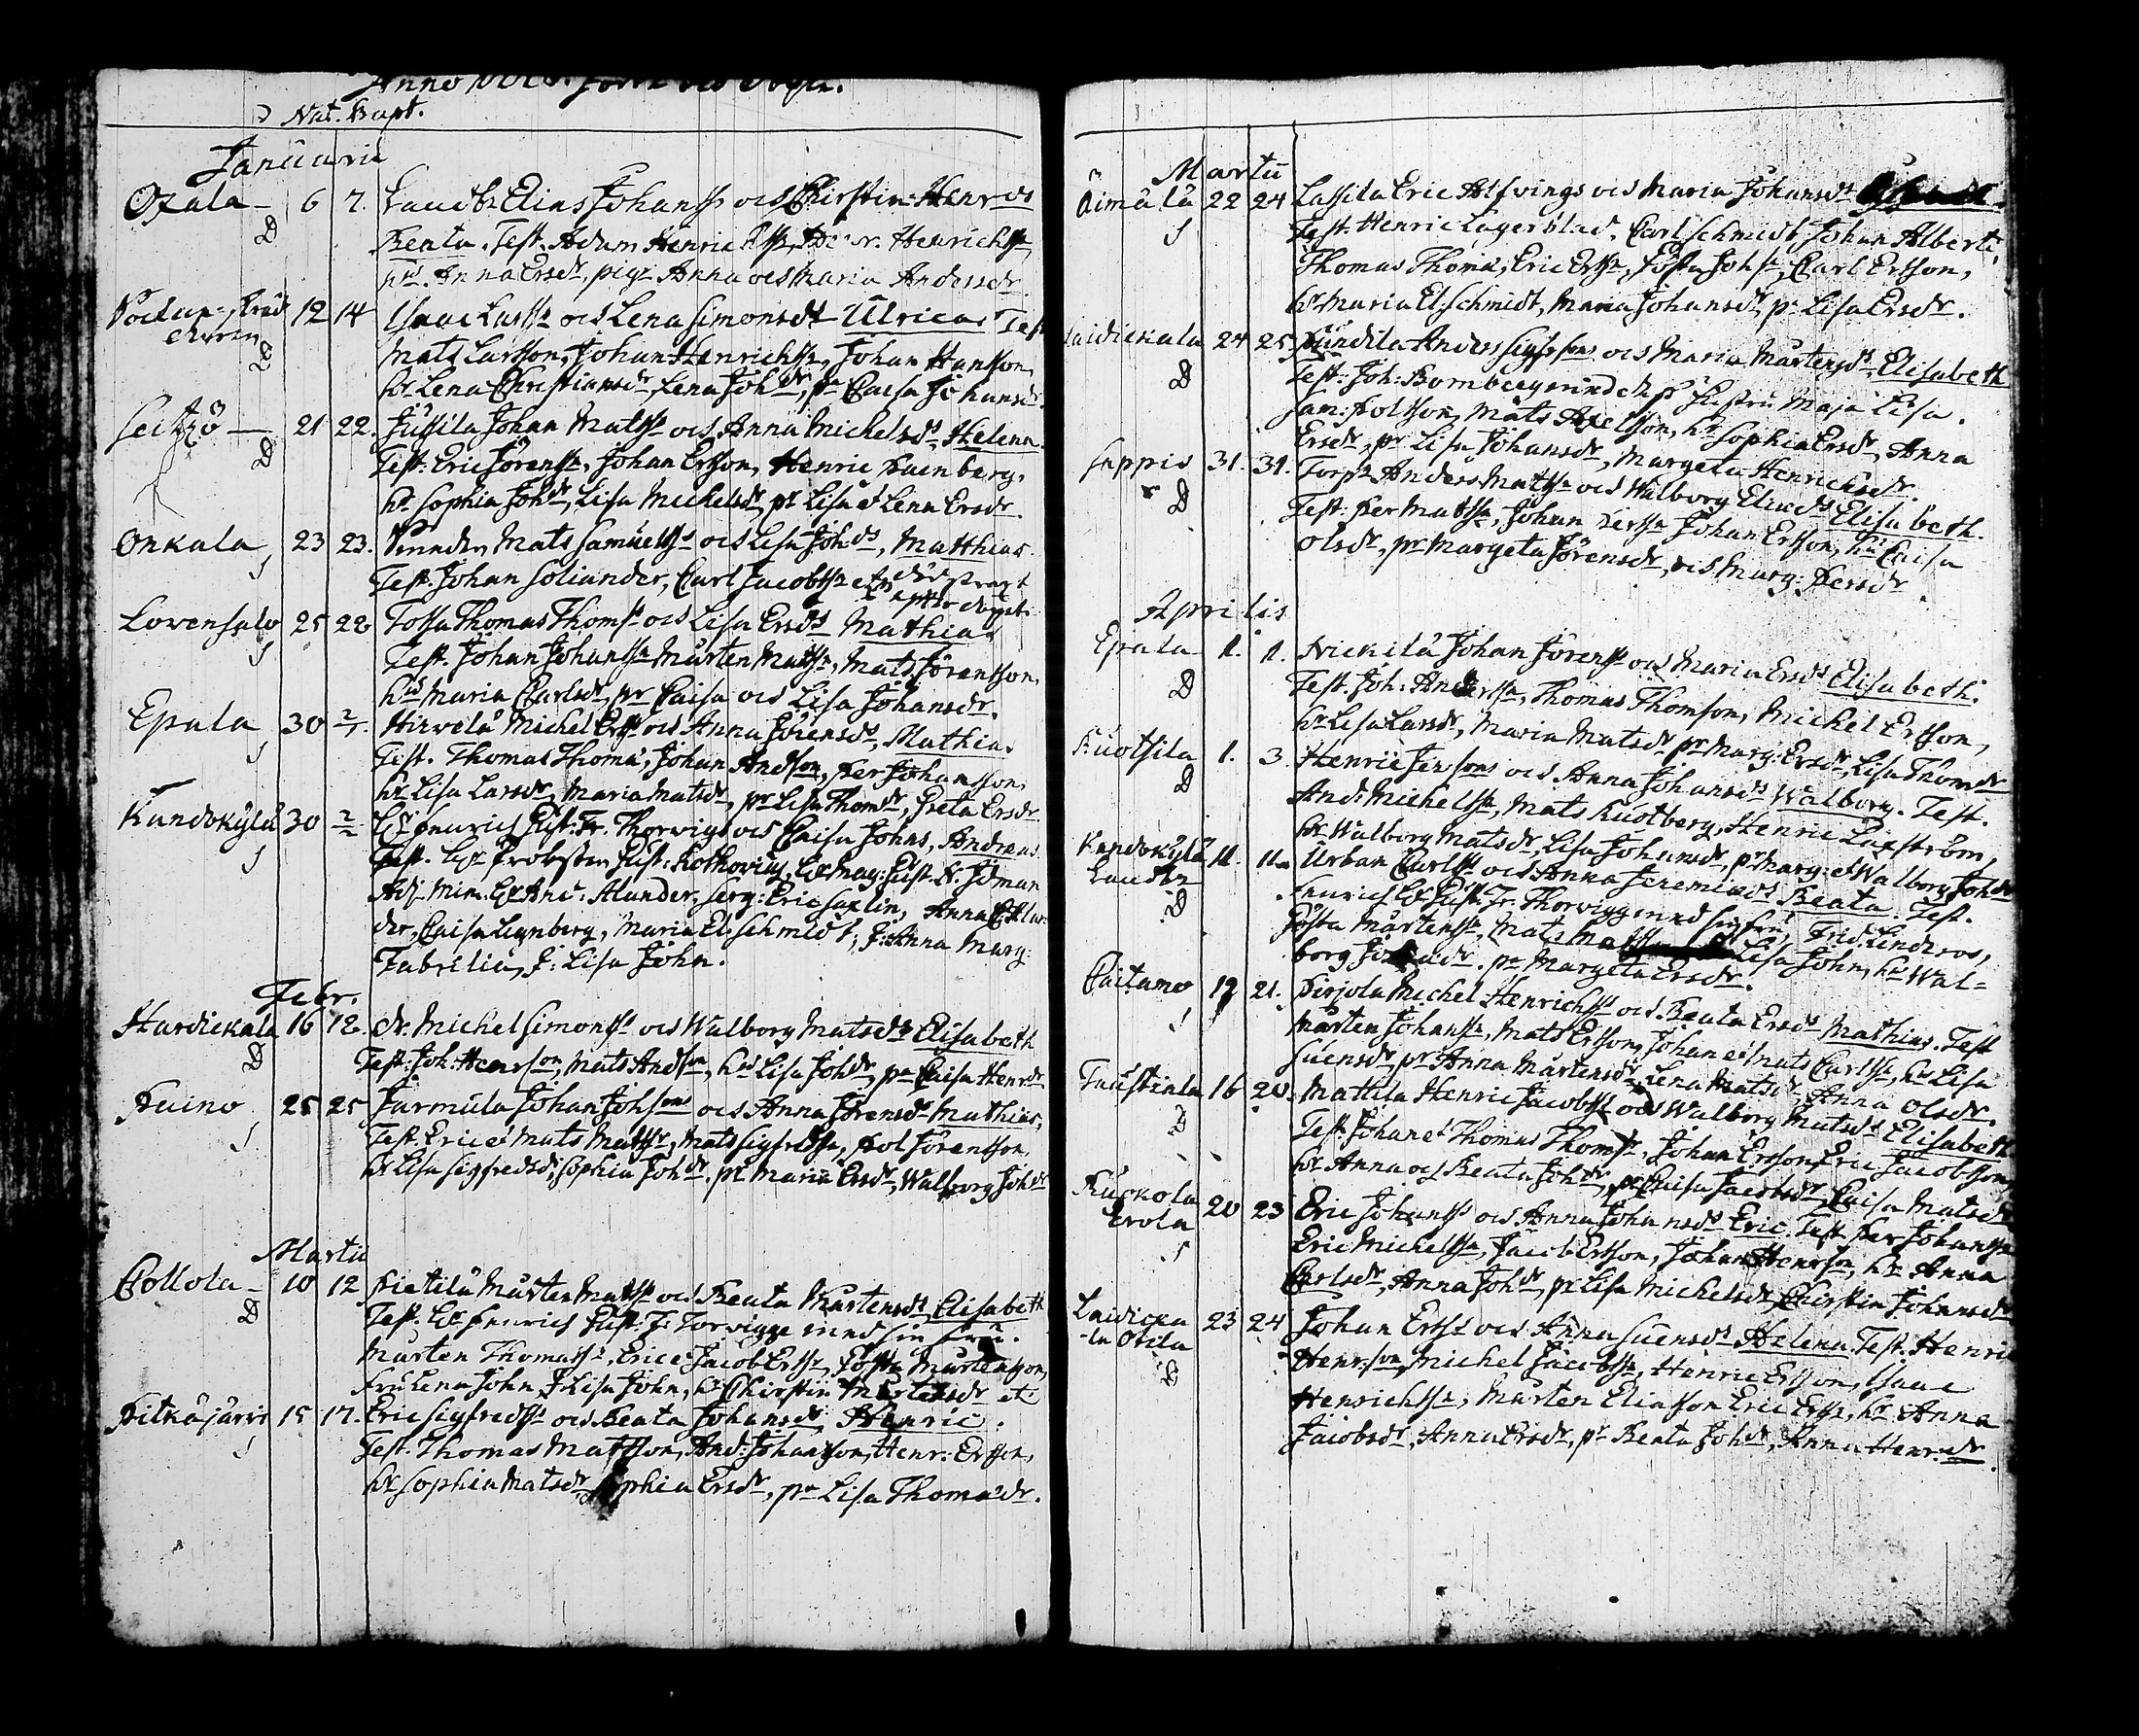 Anno
Nat. Bapt.
Januarii
Ojala 6 7. Johanss och Chirstin Henrds
D Beata. Test. Adam Henric Henrichss
Anna Ersdr, pigr Anna och Maria Andersdr
12 14 Isaac Larsss och Lena Simonsds Ulrica Test
D Mats Larsson, Johan Henrichss, Johan Hansson,
hr Lena Christiansdr, Lena Johdr, pr Caisa Johansdr
21 22. Jussila Johan Matss och Anna Michelsds Helena
D Test: Eric Jörenss, Johan Ersson, Henric
hr Sophia Johdr, Lisa Michelsdr, pr Lisa et Lena Ersdr.
Onkala 23 23. Mats Samuelss och Lisa Johds, Matthias
S Test. Johan Soliander, Carl Jacobss död strart
efter döpet
Lovensalo 25 28 Tossa Thomas Thoms och Lisa Ersds Mathias
S Test. Johan Johanss Mårten Matss, Mats Jörensson,
hr Maria Carlsdr, pr Caisa och Lisa Johansdr.
Epala 30 2/1. Hirvelä Michel Erss och Anna Jörensds, Mathias
S Test. Thomas Thomæ, Johan Andson, Per Johansson,
hr Lisa Larsdr, Maria Matsdr, pr Lisa Thomdr, Greta Ersdr
Kandokylä 30 2/2 Gust: Fr. Thorwigs och Caisa Johns, Andreas
S Test. Probsten Gust: Mag: Gust. A. Idman
Adj. Min. And: Alander, Serg: Eric Saxlin, Anna C Alan
der, Caisa Lignberg, Maria El: Schmidt, J: Anna Marg:
Fabrilia, J: Lisa John.
Febr.
Hardickala 16 18. Michel Simonss och Walborg Matsds Elisabeth
D Test: Joh: Henrson, Mats Andson, hr Lisa Johdr, pr Caisa Henrdr
25 25 Jarmula Johan Johsons och Anna Jörensds Mathias,
S Test. Eric et Mats Matss, Mats Sigfredss, Pol Jörensson,
hr Lisa Sigfredsdr, Sophia Johdr. pr Maria Ersdr, Walborg Johdr
Martii
Collola 10 12 Pietilä Mårten Matss och Beata Mårtensds Elisabeth
D Test. Gust: Fr Torwigge med sin fru.
Mårten Thomass, Eric et Jacob Erss, Gösta Mårtensson,
Fru Lena John, J Lisa John, hr Chirstin Mårtensdr et
Pitkäjärvi 15 17. Eric Sigfredss och Beata Johansds Henric.
S Test. Thomas Matsson, And: Johansson, Henr: Ersson,
hr Sophia Matsdr, Sophia Ersdr, pr Lisa Thomasdr.
Martii
Äimälä 22 24 Lassila Eric Alfvings och Maria Johansds
S Test. Henric Lagerblad, Carl Schmidt, Johan Alberti,
Thomas Thomæ, Eric Erss, Gösta Johss, Carl Ersson,
hr Maria El: Schmidt, Maria Johansdr, pr Lisa Ersdr.
Laidickala 24 25. Anders Sigfrsons och Maria Mårtensds Elisabeth
D Test: Joh: med dess Hustru Maja Lisa.
Sam: Polsson, Mats Axelsson, hr Sophia Ersdr, Anna
Ersdr, pr Lisa Johansdr, Margeta Henricksdr.
Sappis 31. 31. Torpr Anders Matss och Walborg Eliæds Elisabeth.
D Test: Per Matss, Johan Johan Ersson, hu Caisa
Olsdr, pr Margeta Jörensdr, och Marg: Persdr.
Aprilis
Epala 1. 1. Nickilä Johan Jörenss och Maria Ersds Elisabeth.
D Test. Joh: Anderss, Thomas Thomson, Michel Ersson,
hr Lisa Larsdr, Maria Matsdr pr Marg: Ersdr, Lisa Thomdr
Kuotsila 1. 3. Henric Jersons och Anna Johansds Walborg. Test.
D And: Michelss, Mats Kuotberg, Henric Laxström,
hr Walborg Matsdr, Lisa Johansdr, pr Marg: et Walborg Johdr
Kandokylä 11. 11. Urban Carlss och Anna Jeremiæds Beata. Test.
D Gust: Fr. Thorwigge med sin fru, Frid: Lindroos,
Gösta Mårtenss, Mats Lisa John, hr Wal=
borg pr Margeta Ersdr.
Caitamo 19 21. Pirjola Michel Henrichss och Beata Ersds Mathias. Test
S Mårten Johanss, Mats Ersson, Johan et Mats Carlss, hr Lisa
Suensdr, pr Anna Mårtensdr, Lena Matsdr, Anna Olsdr.
16 20. Mattila Henric Jacobss och Walborg Matsds Elisabeth
D Test. Johan et Thomas Thomss, Johan Ersson, Eric Jacobsson,
hr Anna och Beata Johdr, pr Caisa Jacobsdr, Caisa Matsdr
20 23 Eric Johanss och Anna Johansds Eric. Test Per Johanss
S Eric Michelss, Jacob Ersson, Johan Henrson, hr Anna
Carlsdr, Anna Johdr, pr Lisa Michelsdr, Chirstin Johansdr
Laidicka
la Otila 23 24 Johan Erss och Anna Suensds Helena. Test. Henric
D Henrson, Michel Jacobss, Henric Ersson, Isaac
Henrichss, Mårten Eliasson Eric Erss, hr Anna
Jacobsdr, Anna Ersdr, pr Beata Johdr, Anna Henr.dr.